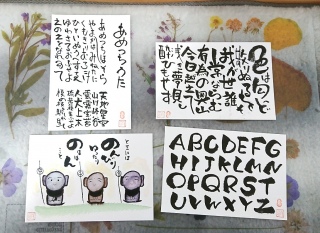 あめつちうた
あめつちほしそら
やまかはみねたに
くもきりむろこけ
ひといぬうへすゑ
ゆわさるおふせよ
えのえをなれゐて
天地星空
山川峰谷
雲霧室苔
人犬上末
色は匂へど
散りぬるを
我が世誰ぞ
常ならむ
有為の奥山
今日越えて
浅き夢見じ
酔ひもせず
ときには
のんびり
ゆったり
ABCDEFG
HIJKLMN
OPQRST
UVWXYZ